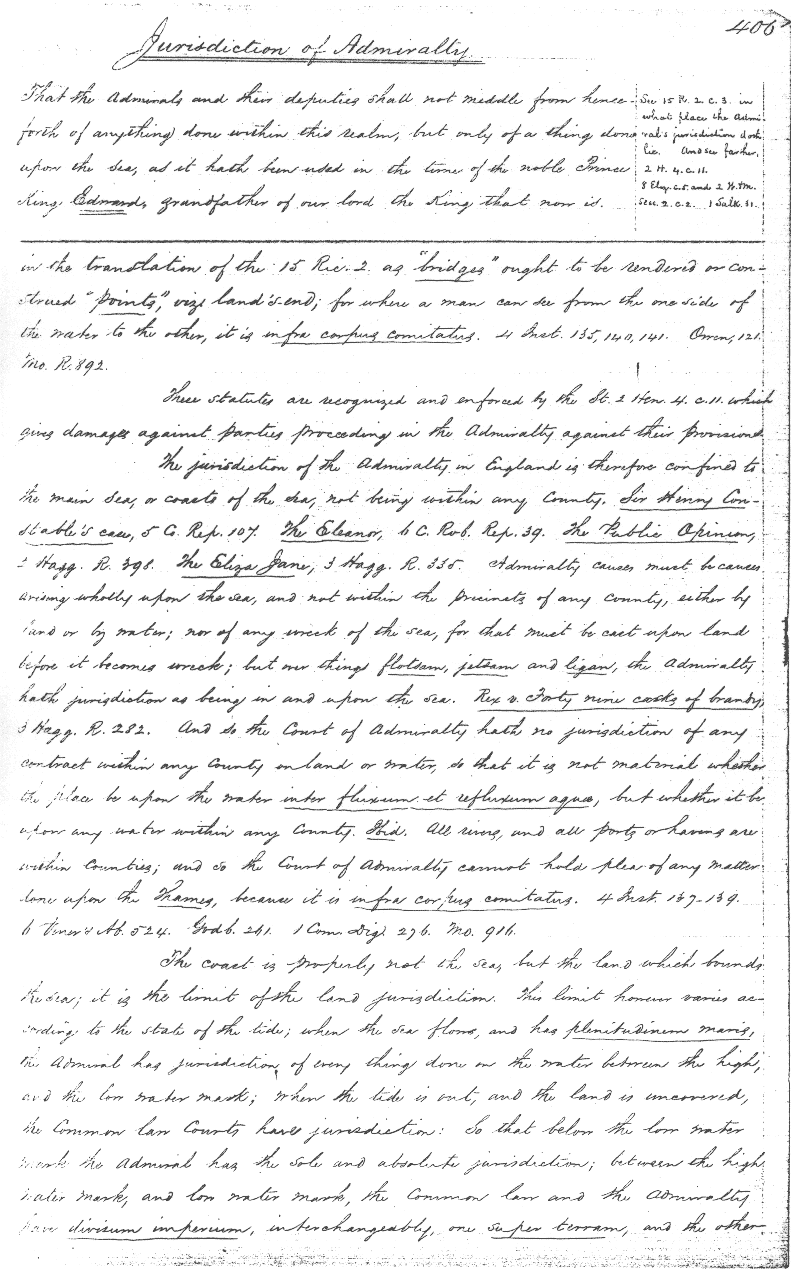 406
Jurisdiction of Admiralty
That the Admirals and their deputies shall not meddle from hence-
forth of anything done within this realm, but only of a thing done
upon the sea, as it hath been used in the time of the noble Prince
King Edward, grandfather of our lord the King that now is.
See 15 R. 2. c. 3. in
what place the Admi-
ral's jurisdiction doth
lie. And see farther,
2 H. 4. c. 11.
8 Eliz. c. 5. and 2 H. M.
Sess. 2. c. 2. 1 Salk. 31.
in the translation of the 15 Ric. 2. as "bridges" ought to be rendered or con-
strued "points", vizt land's end; for where a man can see from the one side of
the water to the other, it is infra corpus comitatus. 4 Inst. 135, 140, 141. Owen, 121.
Mo. R. 892.
These statutes are recognized and enforced by the St. 2 Hen. 4. c. 11. which
gives damages against parties proceeding in the Admiralty against their provisions.
The jurisdiction of the Admiralty in England is therefore confined to
the main sea, or coasts of the sea, not being within any County. Sir Henry Con-
stable's case, 5 Co. Rep. 107. The Eleanor, 6 C. Rob. Rep. 39. The Public Opinion,
2 Hagg. R. 398. The Eliza Jane, 3 Hagg. R. 335. Admiralty causes must be causes
arising wholly upon the sea, and not within the precincts of any county, either by
land or by water; nor of any wreck of the sea, for that must be cast upon land
before it becomes wreck; but over things flotsam, jetsam and ligan, the Admiralty
hath jurisdiction as being in and upon the sea. Rex v. Forty nine casks of brandy,
3 Hagg. R. 282. And so the Court of Admiralty hath no jurisdiction of any
contract within any County on land or water, so that it is not material whether
the place be upon the water inter fluxum et refluxum aquæ, but whether it be
upon any water within any County. Ibid. All rivers, and all ports or havens are
within Counties; and so the Court of Admiralty cannot hold plea of any matter
done upon the Thames, because it is infra corpus comitatus. 4 Inst. 137-139.
6 Viner's Ab. 524. Godb. 261. 1 Com. Dig. 276. Mo. 916.
The coast is properly not the sea, but the land which bounds
the sea; it is the limit of the land jurisdiction. This limit however varies ac-
cording to the state of the tide; when the sea flows, and has plenitudinem maris,
the Admiral has jurisdiction of every thing done on the water between the high,
and the low water mark; when the tide is out, and the land is uncovered,
the Common law Courts have jurisdiction: So that below the low water
mark the Admiral has the sole and absolute jurisdiction; between the high
water mark, and low water mark, the Common law and the Admiralty
have divisum imperium, interchangeably, one super terram, and the other